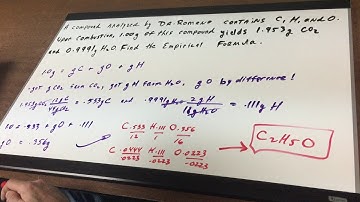 A compound Analyzed by DR. Romano contains C, H, and O.
Upon Combustion, 1.00g of this compound yields 1.953g CO2
and 0.9991g H2O. Find the Empirical Formula.
1.0g = gC + gO + gH
get gC from CO2, get gH from H2O, gO by difference!
1.953g CO2 12gC / 44gCO2 = .533gC and .9991gH2O 2gH / 18gH2O = .111g H
1.0 = .533 + gO + .111
gO = .356g
C .533 / 12 H .111 / 1 O .356 / 16
C .0444 / .0223 H .111 / .0223 O .0223 / .0223
C2H5O